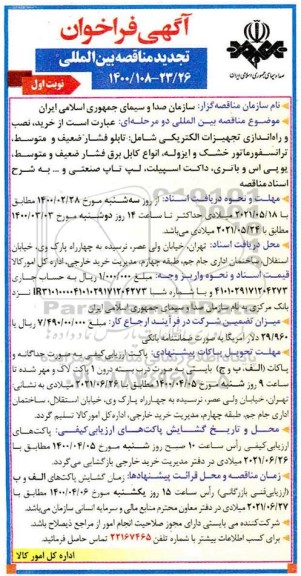 آگهی فراخوان
تجدید مناقصه بین المللی
۱۴۰۰/۱۰۸-۲۳/۲۶
نوبت اول
صدا و سیمای جمهوری اسلامی ایران
نام سازمان مناقصه‌گزار: سازمان صدا و سیمای جمهوری اسلامی ایران
موضوع مناقصه بین‌المللی دو مرحله‌ای: عبارت است از خرید، نصب
و راه‌اندازی تجهیزات الکتریکی شامل: تابلو فشار ضعیف و متوسط،
ترانسفورماتور خشک و ایزوله، انواع کابل برق فشار ضعیف و متوسط،
یو پی اس و باتری، داکت اسپیلت، لپ تاپ صنعتی و ... به شرح
اسناد مناقصه
مهلت و نحوه دریافت اسناد: از روز سه‌شنبه مورخ ۱۴۰۰/۰۲/۲۸ مطابق با
۲۰۲۱/۰۵/۱۸ میلادی حداکثر تا ساعت ۱۴ روز دوشنبه مورخ ۱۴۰۰/۰۳/۰۳
مطابق با ۲۰۲۱/۰۵/۲۴ میلادی می‌باشد.
محل دریافت اسناد: تهران، خیابان ولی عصر، نرسیده به چهارراه پارک وی، خیابان
استقلال، ساختمان اداری جام جم، طبقه چهارم، مدیریت خرید خارجی، اداره کل امور کالا
قیمت اسناد و نحوه واریز وجه: مبلغ ۱/۰۰۰/۰۰۰ ریال به حساب جاری
۴۱۰۱۰۲۹۱۷۱۲۰۴۲۷۳ و یا شماره شبا IR۳۱۰۱۰۰۰۰۴۱۰۱۰۲۹۱۷۱۲۰۴۲۷۳ نزد
بانک مرکزی به نام سازمان صدا و سیمای جمهوری اسلامی ایران
میزان تضمین شرکت در فرآیند ارجاع کار: مبلغ ۷/۴۹۰/۰۰۰/۰۰۰ ریال یا
۲۹/۹۶۰ دلار آمریکا به صورت ضمانتنامه بانکی
مهلت تحویل پاکات پیشنهادی: پاکت ارزیابی کیفی به صورت جداگانه و
پاکات (الف، ب و ج) بایستی به صورت در بسته درون ۱ پاکت لاک و مهر شده تا
ساعت ۹ روز شنبه مورخ ۱۴۰۰/۰۴/۰۵ مطابق با ۲۰۲۱/۰۶/۲۶ میلادی به نشانی
تهران، خیابان ولی عصر، نرسیده به چهارراه پارک وی، خیابان استقلال، ساختمان
اداری جام جم، طبقه چهارم، مدیریت خرید خارجی، اداره کل امور کالا تسلیم گردد.
محل و تاریخ گشایش پاکت‌های ارزیابی کیفی: پاکت‌های
ارزیابی کیفی رأس ساعت ۱۰ صبح روز شنبه مورخ ۱۴۰۰/۰۴/۰۵ مطابق با
۲۰۲۱/۰۶/۲۶ میلادی در دفتر مدیریت خرید خارجی بازگشایی می‌گردد.
زمان مناقصه و محل قرائت پیشنهادها: زمان گشایش پاکت‌های الف و ب
(ارزیابی فنی بازرگانی) رأس ساعت ۱۵ روز یکشنبه مورخ ۱۴۰۰/۰۴/۰۶ مطابق با
۲۰۲۱/۰۶/۲۷ میلادی در دفتر معاون محترم منابع مالی و سرمایه انسانی سازمان می‌باشد.
شرکت‌کننده می بایستی دارای مجوز صلاحیت انجام امور از مراجع ذیصلاح باشد.
برای کسب اطلاعات بیشتر با شماره تلفن ۲۲۱۶۷۴۶۵ تماس حاصل فرمائید.
اداره کل امور کالا